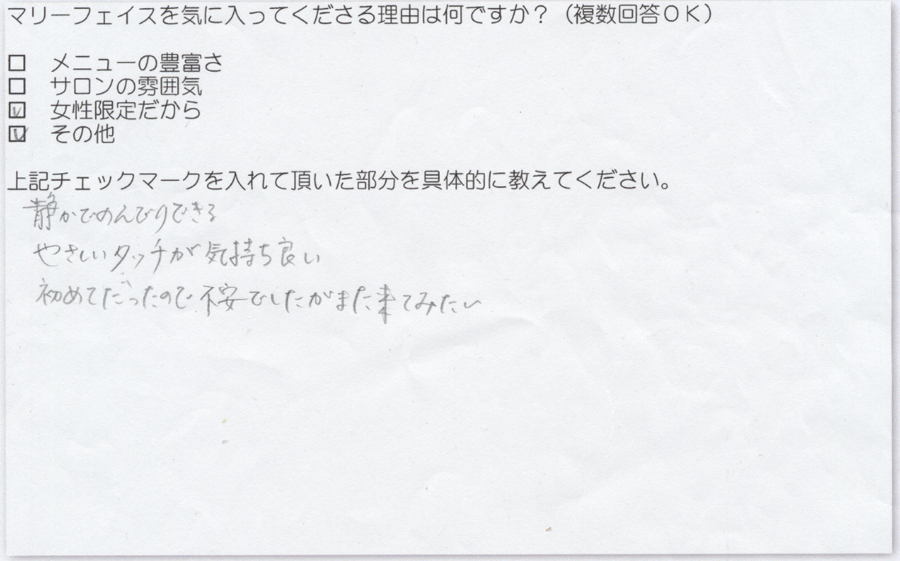 マリーフェイスを気に入ってくださる理由は何ですか？（複数回答ＯＫ）
□ メニューの豊富さ
□ サロンの雰囲気
☑ 女性限定だから
☑ その他
上記チェックマークを入れて頂いた部分を具体的に教えてください。
静かでのんびりできる
やさしいタッチが気持ち良い
初めてだったので不安でしたがまた来てみたい